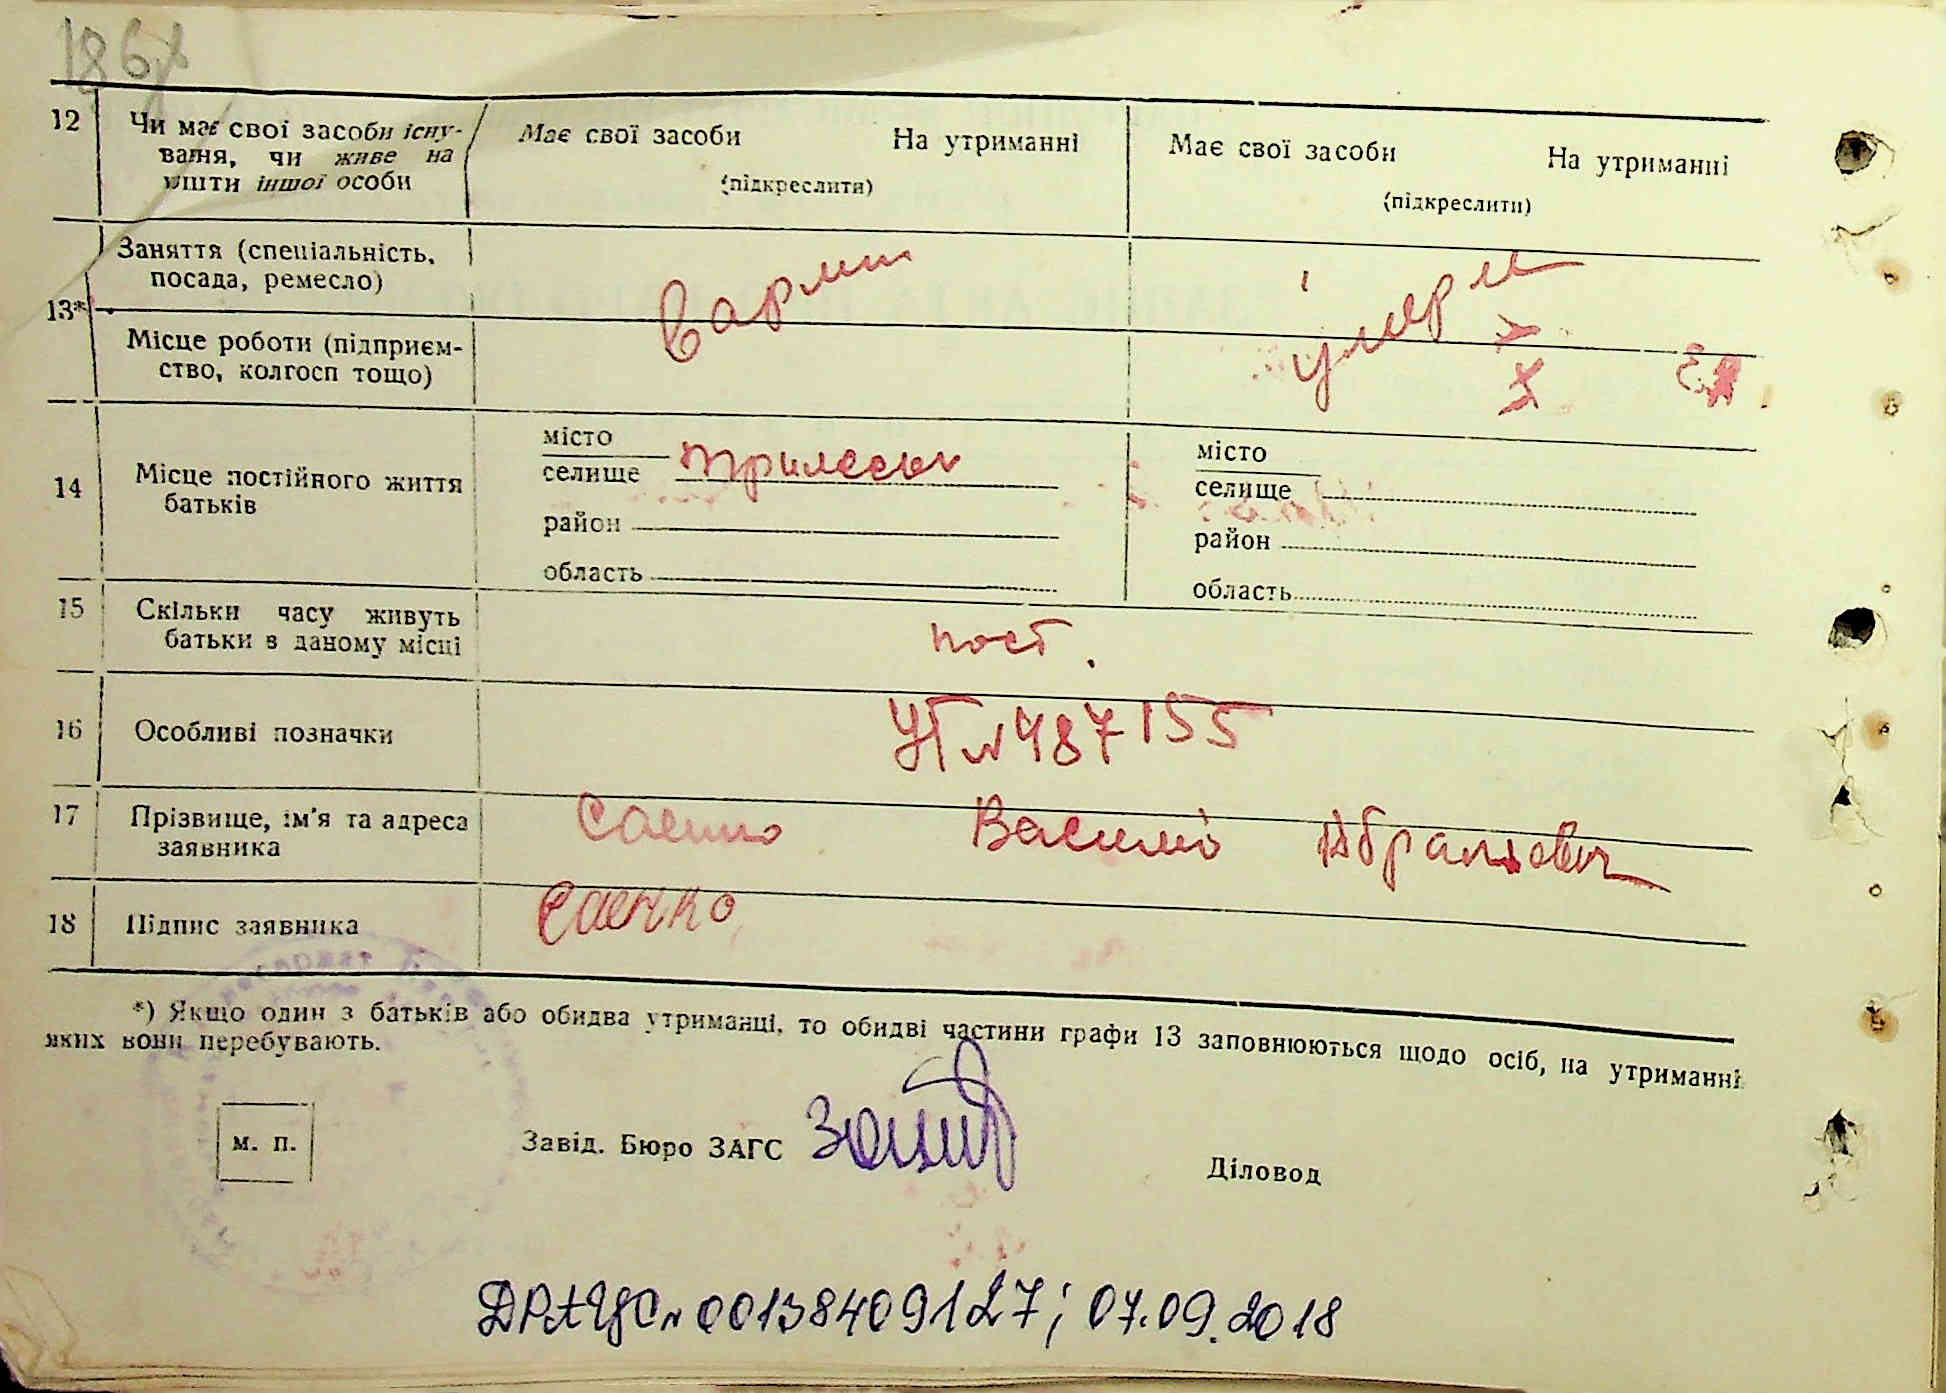 186
12 Чи має свої засоби існу-
вання, чи живе на
кошти іншої особи
Має свої засоби На утриманні
(підкреслити)
Має свої засоби На утриманні
(підкреслити)
13*
Заняття (спеціальність,
посада, ремесло)
Місце роботи (підприєм-
ство, колгосп тощо)
в армии
умерла
14 Місце постійного життя
батьків
місто
селище Трилесы
район
область
місто
селище
район
область
15 Скільки часу живуть
батьки в даному місці
пост.
16 Особливі позначки
УГ № 487155
17 Прізвище, ім'я та адреса
заявника
Саенко Василий Абрамович
18 Підпис заявника
Саенко
*) Якщо один з батьків або обидва утриманці, то обидві частини графи 13 заповнюються щодо осіб, на утриманні
яких вони перебувають.
м. п.
Завід. Бюро ЗАГС
Діловод
ДРАЦС № 00138409127; 07.09.2018